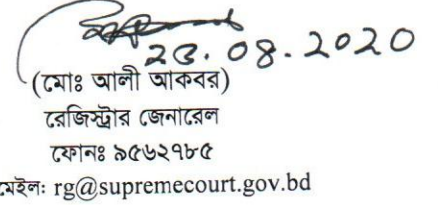 ২৩.০৮.২০২০
(মোঃ আলী আকবর)
রেজিস্ট্রার জেনারেল
ফোনঃ ৯৫৬২৭৮৫
মেইল: rg@supremecourt.gov.bd